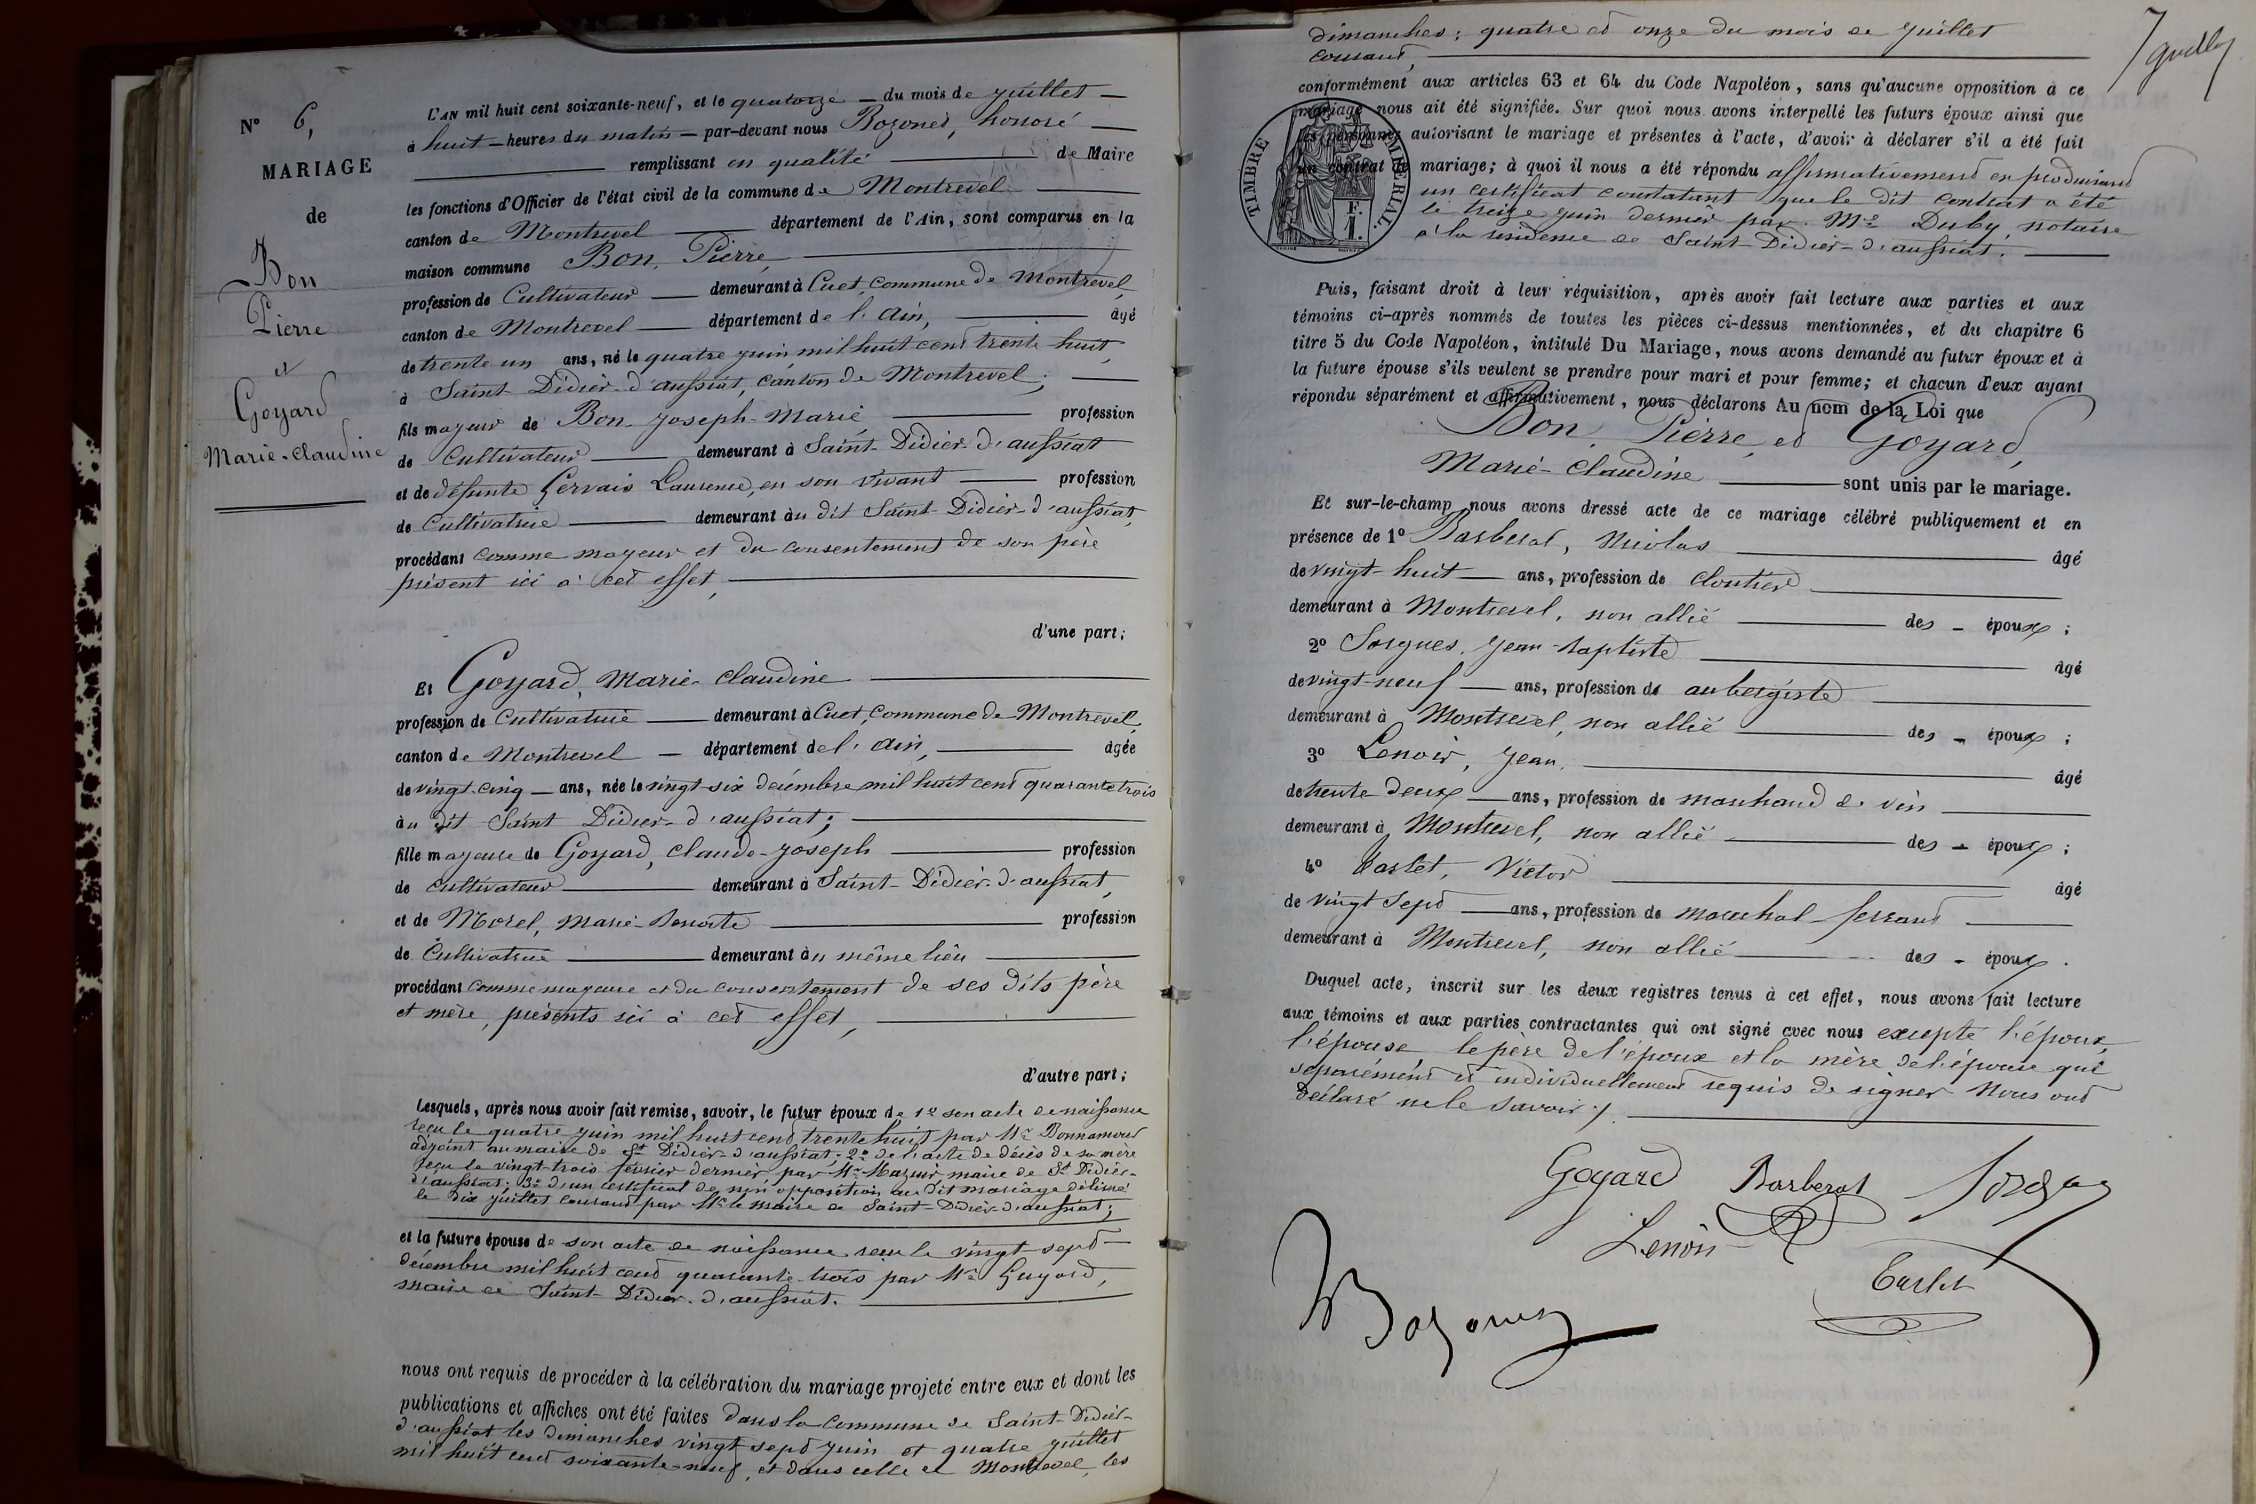 N° 6,
MARIAGE
de
Bon
Pierre
et
Goyard
Marie-Claudine
L'AN mil huit cent soixante-neuf, et le quatorze du mois de juillet
à huit heures du matin par-devant nous Bozonet, honoré
remplissant en qualité de Maire
les fonctions d'Officier de l'état civil de la commune de Montrevel
canton de Montrevel département de l'Ain, sont comparus en la
maison commune Bon, Pierre,
profession de Cultivateur demeurant à Cuet, commune de Montrevel,
canton de Montrevel département de l'Ain, âgé
de trente un ans, né le quatre juin mil huit cent trente huit,
à Saint-Didier-d'aussiat, canton de Montrevel;
fils majeur de Bon Joseph-Marie profession
de Cultivateur demeurant à Saint-Didier-d'aussiat
et de défunte Gervais Laurence, en son vivant profession
de Cultivatrice demeurant au dit Saint-Didier-d'aussiat,
procédant comme majeur et du consentement de son père
présent ici à cet effet,
d'une part;
Et Goyard, Marie-Claudine
profession de Cultivatrice demeurant à Cuet, commune de Montrevel,
canton de Montrevel département de l'Ain, âgée
de vingt-cinq ans, née le vingt-six décembre mil huit cent quarante trois
au dit Saint Didier-d'aussiat;
fille majeure de Goyard, Claude-Joseph profession
de cultivateur demeurant à Saint-Didier-d'aussiat,
et de Morel, Marie-Benoite profession
de Cultivatrice demeurant au même lieu
procédant comme majeure et du consentement de ses dits père
et mère, présents ici à cet effet,
d'autre part;
Lesquels, après nous avoir fait remise, savoir, le futur époux de 1° son acte de naissance
reçu le quatre juin mil huit cent trente huit par Mr Bonnamour
adjoint au maire de St Didier-d'aussiat; 2° de l'acte de décès de sa mère
reçu le vingt-trois février dernier, par Mr Mazuir maire de St Didier-
d'aussiat; 3° d'un certificat de non opposition au dit mariage délivré
le dix juillet courant par Mr le maire de Saint-Didier-d'aussiat;
et la future épouse de son acte de naissance reçu le vingt-sept
décembre mil huit cent quarante-trois par Mr Guyard,
maire de Saint-Didier-d'aussiat.
nous ont requis de procéder à la célébration du mariage projeté entre eux et dont les
publications et affiches ont été faites dans la commune de Saint-Didier-
d'aussiat les dimanches vingt sept juin et quatre juillet
mil huit cent soixante-neuf, et dans celle de Montrevel, les
dimanches; quatre et onze du mois de juillet
courant,
conformément aux articles 63 et 64 du Code Napoléon, sans qu'aucune opposition à ce
mariage nous ait été signifiée. Sur quoi nous avons interpellé les futurs époux ainsi que
les personnes autorisant le mariage et présentes à l'acte, d'avoir à déclarer s'il a été fait
un contrat de mariage; à quoi il nous a été répondu affirmativement en produisant
un certificat constatant que le dit contrat a été
le treize juin dernier par Me Duby, notaire
à la résidence de Saint-Didier-d'aussiat.
TIMBRE IMPERIAL
F.
1.
Puis, faisant droit à leur réquisition, après avoir fait lecture aux parties et aux
témoins ci-après nommés de toutes les pièces ci-dessus mentionnées, et du chapitre 6
titre 5 du Code Napoléon, intitulé Du Mariage, nous avons demandé au futur époux et à
la future épouse s'ils veulent se prendre pour mari et pour femme; et chacun d'eux ayant
répondu séparément et affirmativement, nous déclarons Au nom de la Loi que
Bon, Pierre, et Goyard,
Marie-Claudine sont unis par le mariage.
Et sur-le-champ nous avons dressé acte de ce mariage célébré publiquement et en
présence de 1° Barberat, Nicolas âgé
de vingt-huit ans, profession de cloutier
demeurant à Montrevel, non allié des époux;
2° Sorgues, Jean-Baptiste âgé
de vingt-neuf ans, profession de aubergiste
demeurant à Montrevel, non allié des époux;
3° Lenoir, Jean, âgé
de trente deux ans, profession de marchand de vin
demeurant à Montrevel, non allié des époux;
4° Carlet, Victor âgé
de vingt sept ans, profession de maréchal ferrant
demeurant à Montrevel, non allié des époux.
Duquel acte, inscrit sur les deux registres tenus à cet effet, nous avons fait lecture
aux témoins et aux parties contractantes qui ont signé avec nous excepté l'époux,
l'épouse, le père de l'époux et la mère de l'épouse qui
séparément et individuellement requis de signer nous ont
déclaré ne le savoir ./.
Goyard Barberat
Lenoir
Carlet
Bozonet